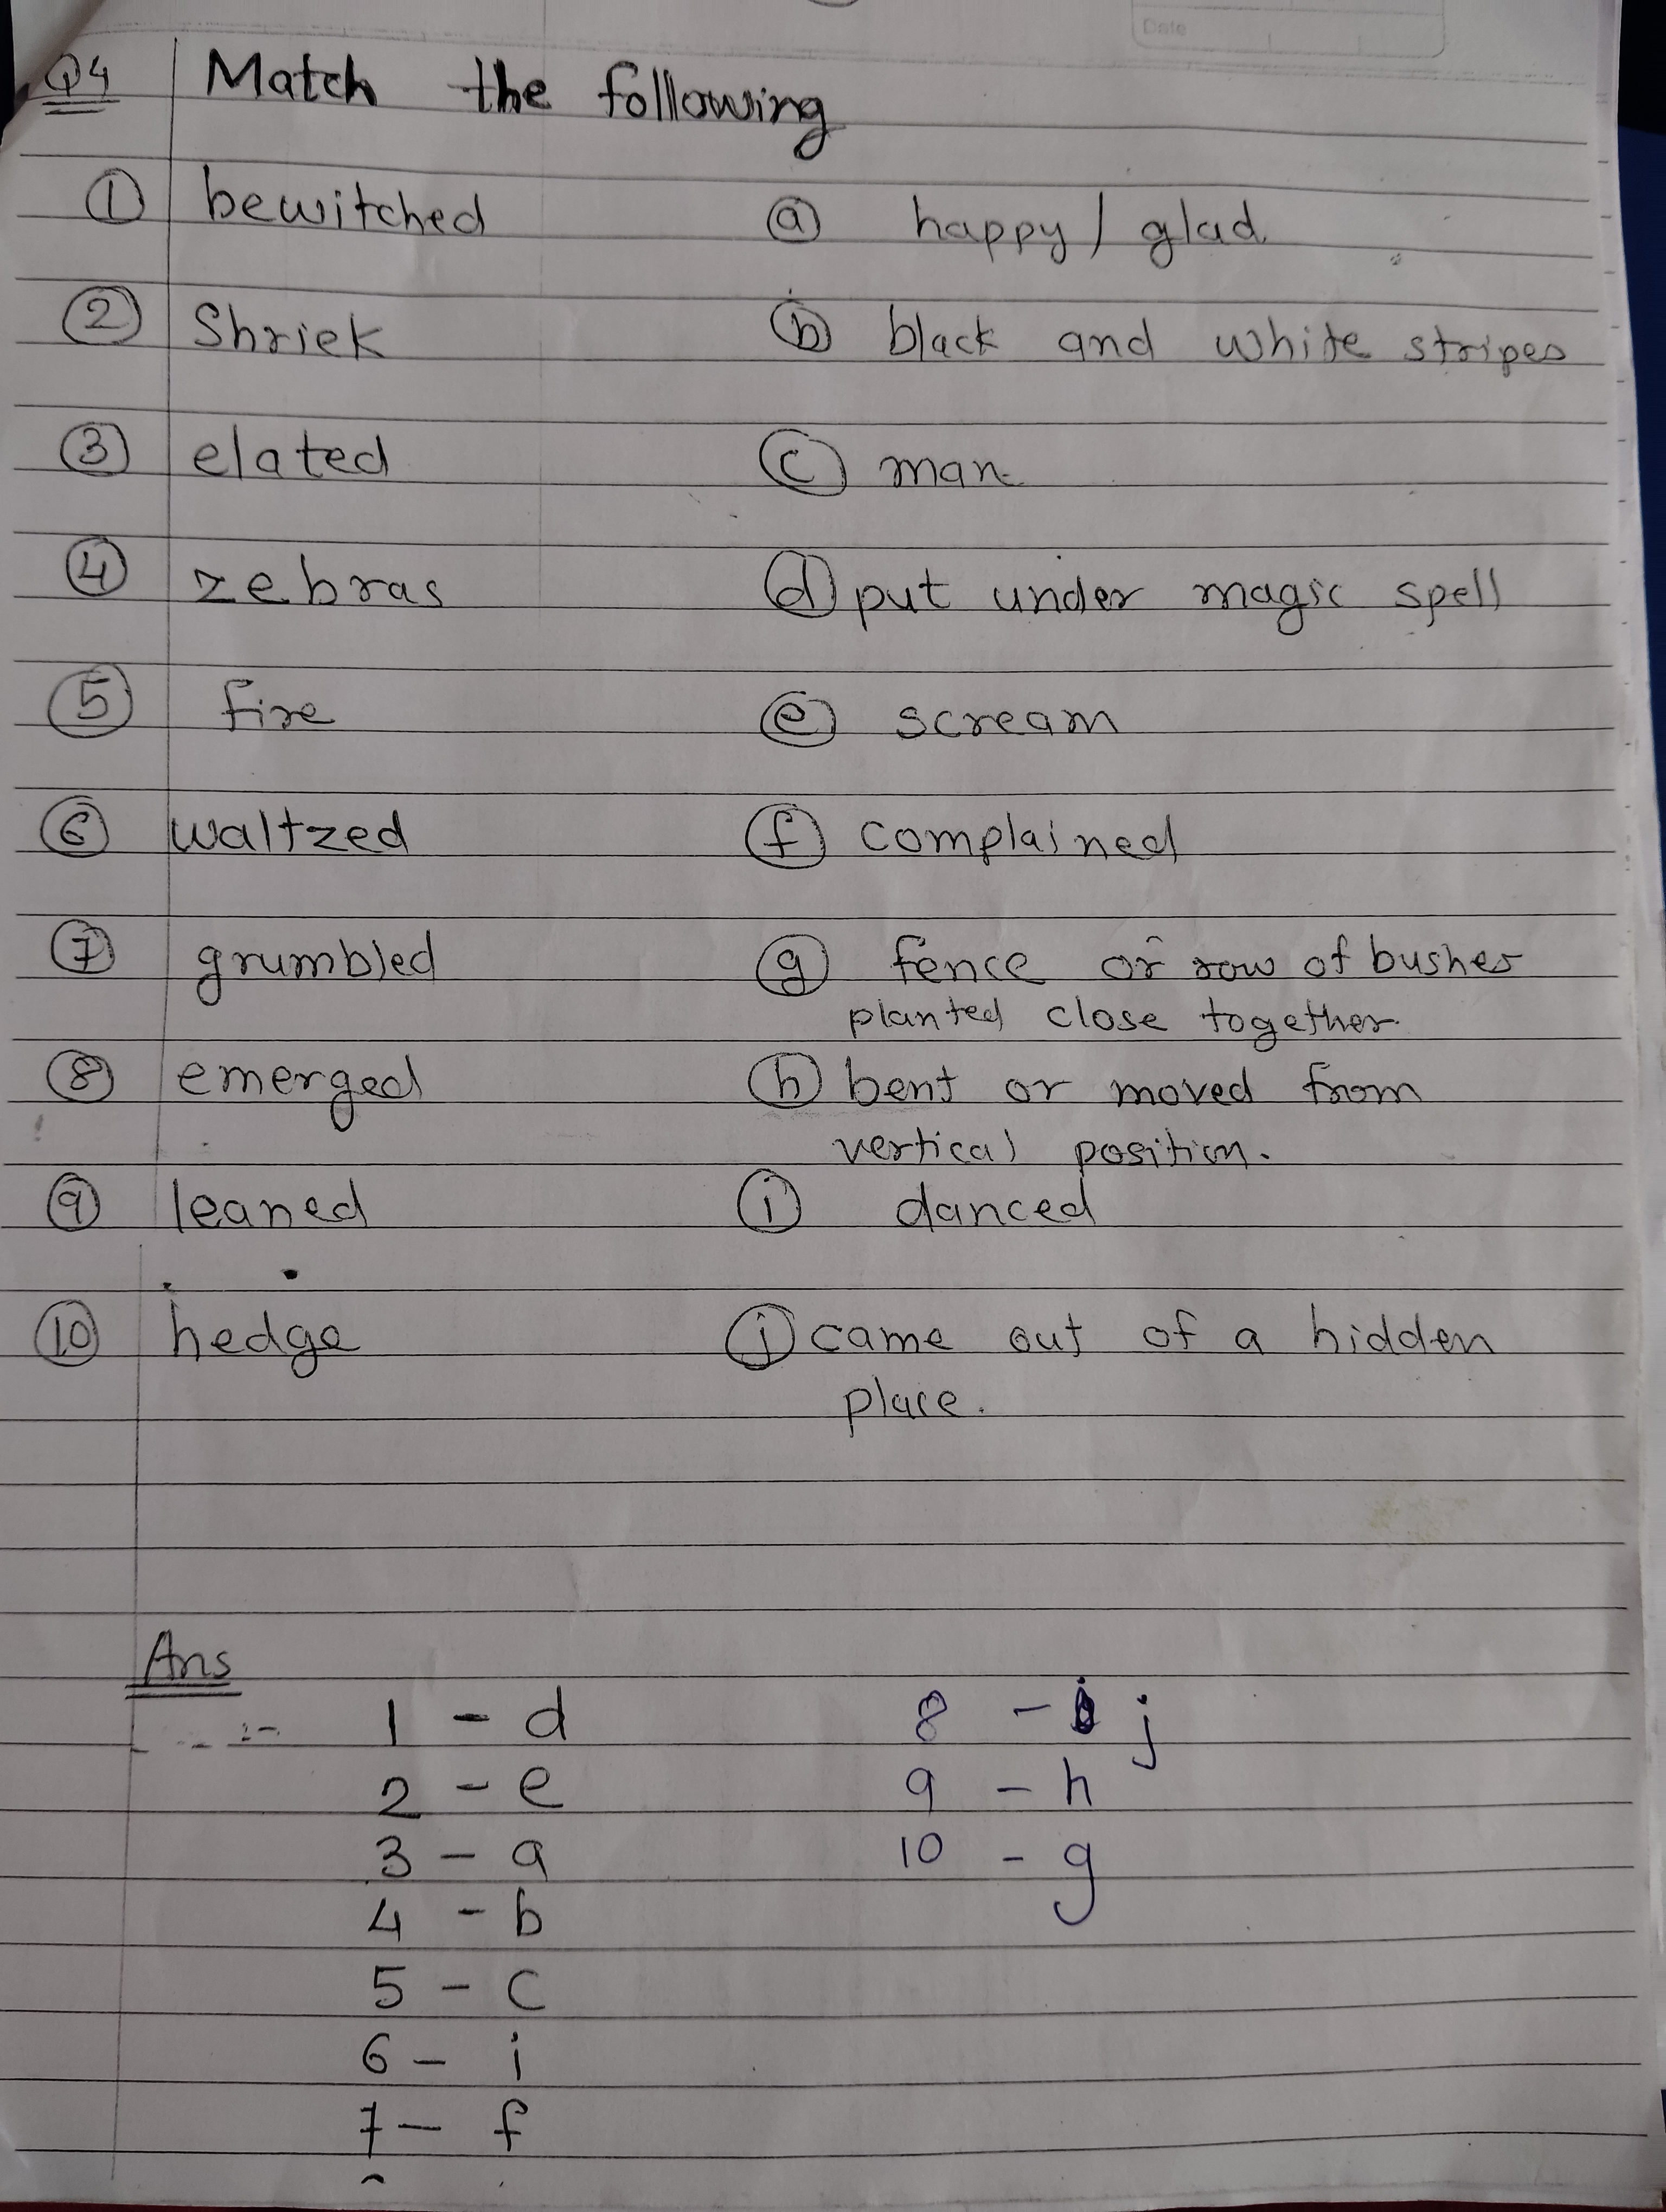 Date
Q4 Match the following
1 bewitched a happy / glad.
2 Shriek b black and white stripes
3 elated c man.
4 zebras d put under magic spell
5 fire e scream
6 waltzed f complained
7 grumbled g fence or row of bushes
planted close together.
8 emerged h bent or moved from
vertical position.
9 leaned i danced
10 hedge j came out of a hidden
place.
Ans
:- 1 - d 8 - j
2 - e 9 - h
3 - a 10 - g
4 - b
5 - c
6 - i
7 - f